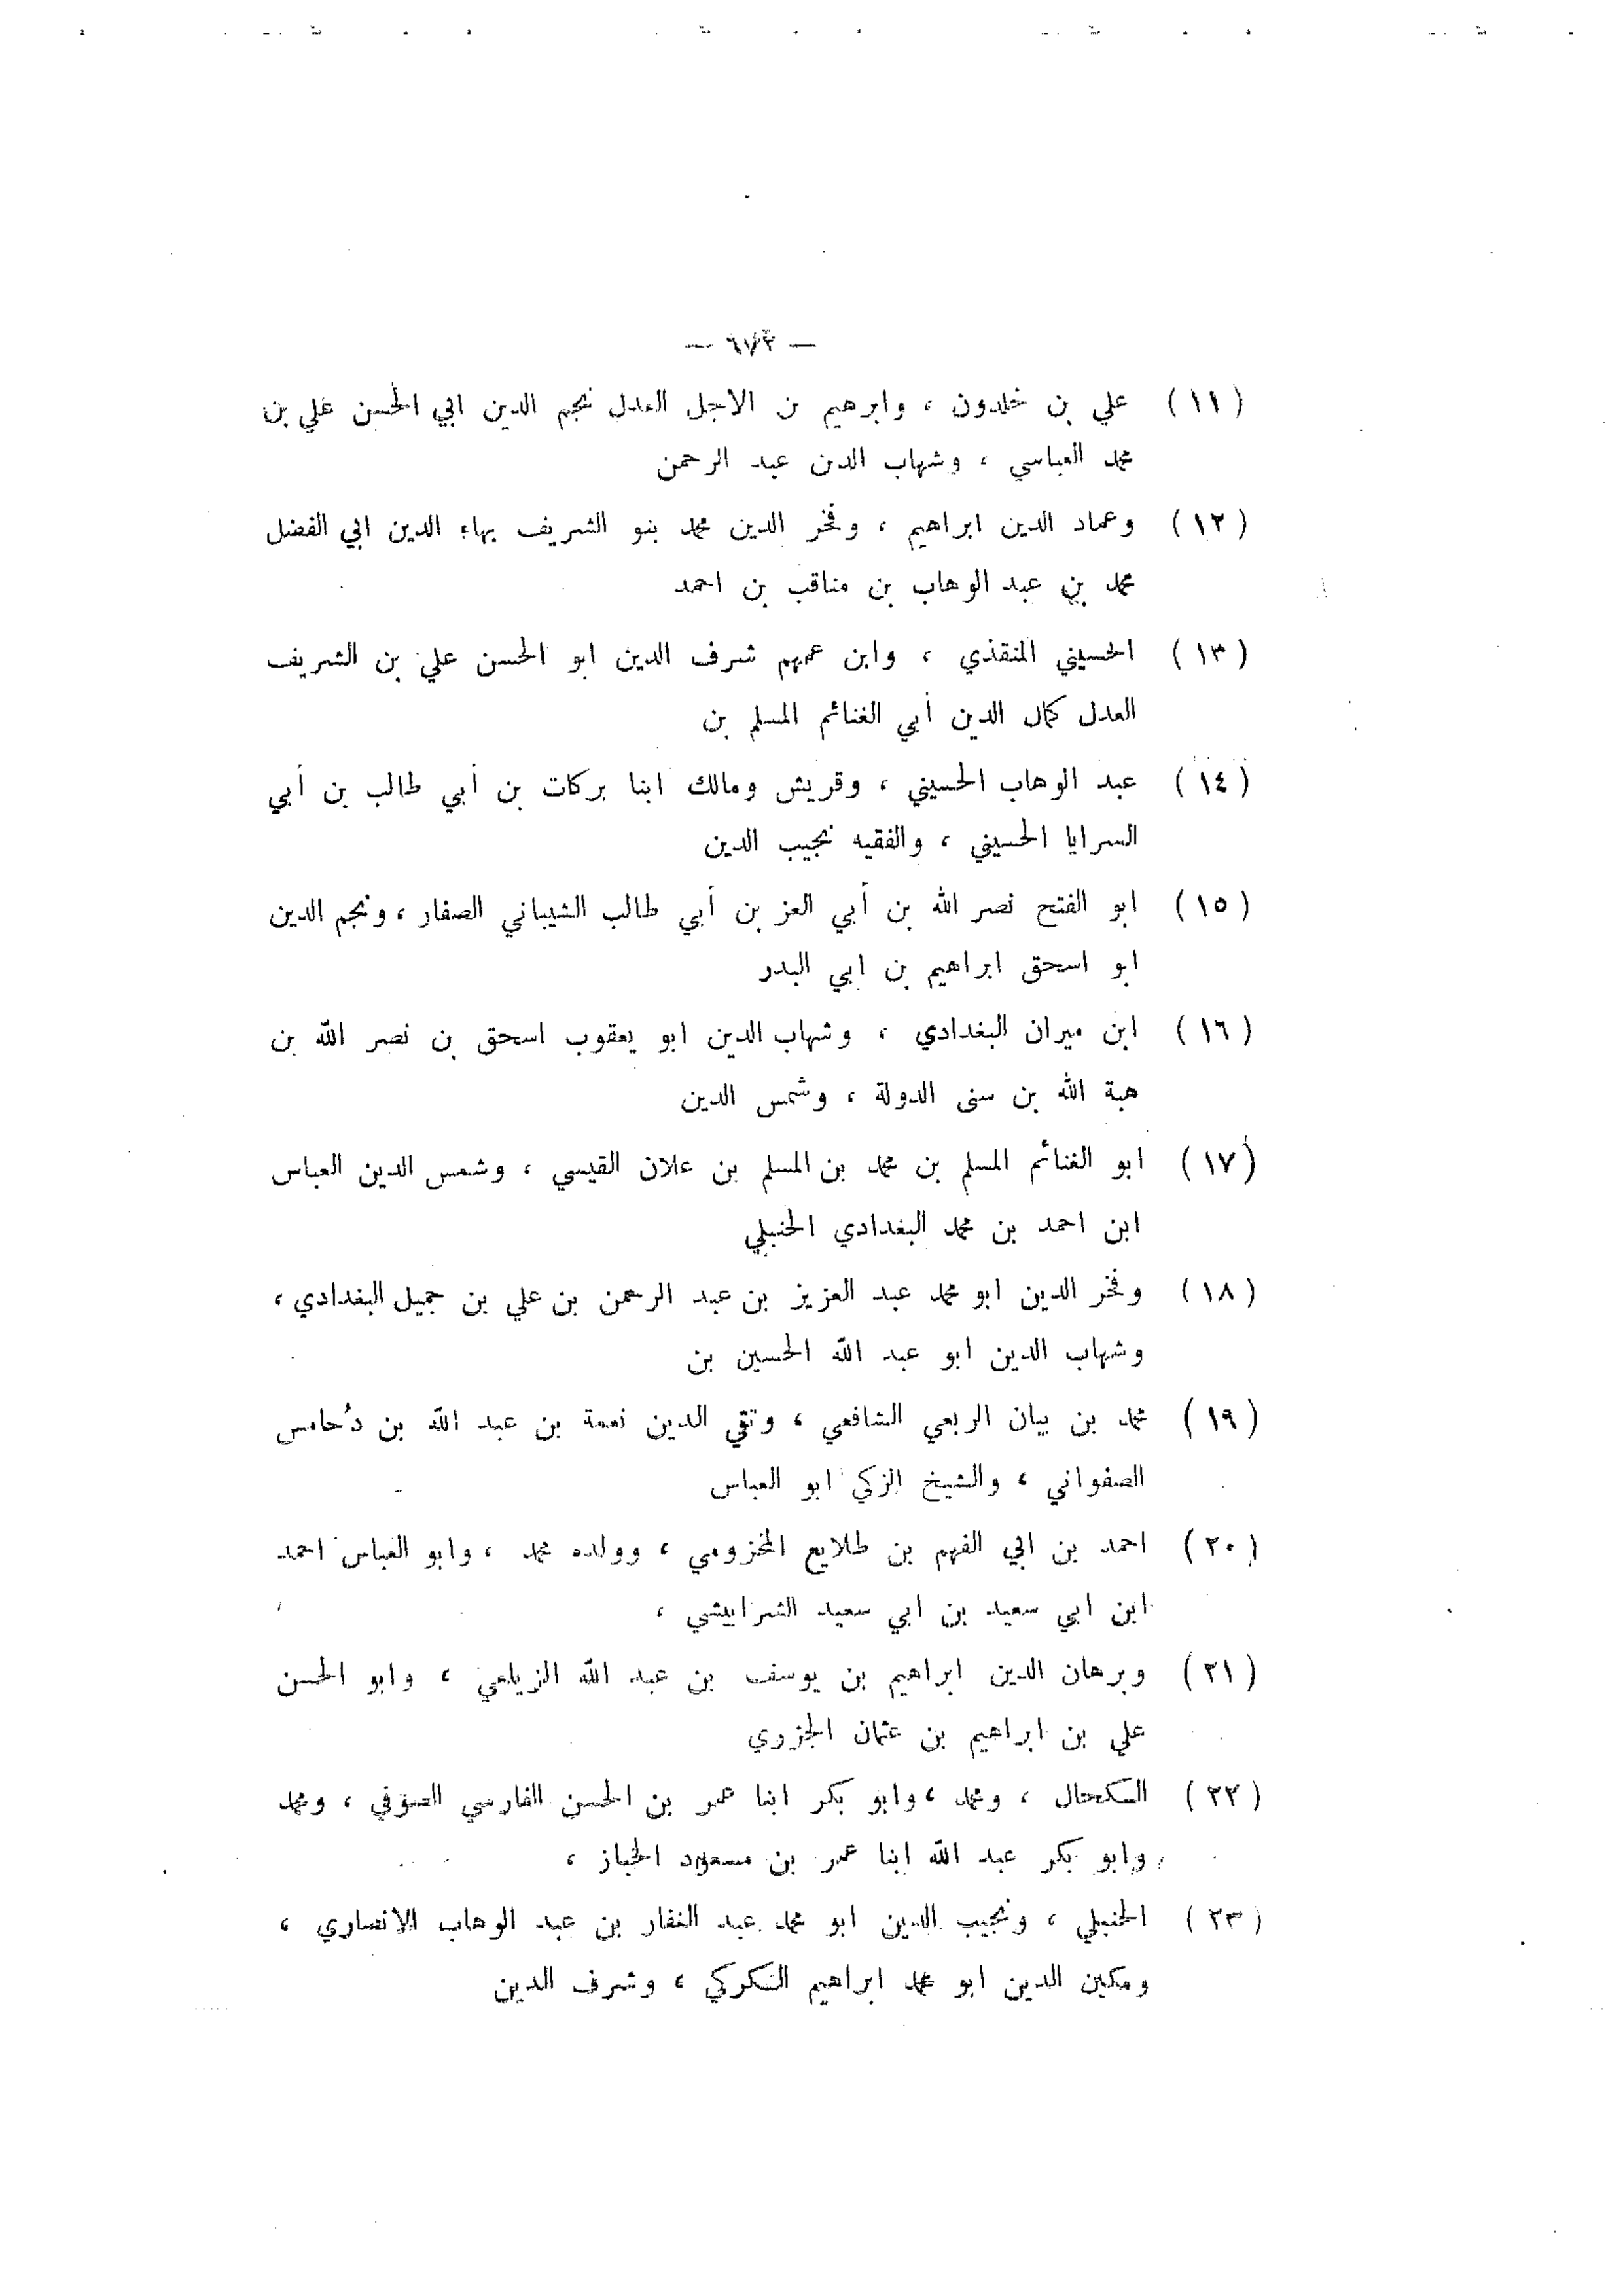 — ٦٧٣ —
(١١) علي بن خلدون ، وابرهيم بن الاجل العدل نجم الدين ابي الحسن علي بن
محمد العباسي ، وشهاب الدين عبد الرحمن
(١٢) وعماد الدين ابراهيم ، وفخر الدين محمد بنو الشريف بهاء الدين ابي الفضل
محمد بن عبد الوهاب بن مناقب بن احمد
(١٣) الحسيني المنقذي ، وابن عمهم شرف الدين ابو الحسن علي بن الشريف
العدل كمال الدين أبي الغنائم المسلم بن
(١٤) عبد الوهاب الحسيني ، وقريش ومالك ابنا بركات بن أبي طالب بن أبي
السرايا الحسيني ، والفقيه نجيب الدين
(١٥) ابو الفتح نصر الله بن أبي العز بن أبي طالب الشيباني الصفار ، ونجم الدين
ابو اسحق ابراهيم بن ابي البدر
(١٦) ابن ميران البغدادي ، وشهاب الدين ابو يعقوب اسحق بن نصر الله بن
هبة الله بن سنى الدولة ، وشمس الدين
(١٧) ابو الغنائم المسلم بن محمد بن المسلم بن علان القيسي ، وشمس الدين العباس
ابن احمد بن محمد البغدادي الحنبلي
(١٨) وفخر الدين ابو محمد عبد العزيز بن عبد الرحمن بن علي بن جميل البغدادي ،
وشهاب الدين ابو عبد الله الحسين بن
(١٩) محمد بن بيان الربعي الشافعي ، وتقي الدين نعمة بن عبد الله بن دُحامس
الصفواني ، والشيخ الزكي ابو العباس
(٢٠) احمد بن ابي الفهم بن طلايع المخزومي ، وولده محمد ، وابو العباس احمد
ابن ابي سعيد بن ابي سعيد الشرابيشي ،
(٢١) وبرهان الدين ابراهيم بن يوسف بن عبد الله الزيلعي ، وابو الحسن
علي بن ابراهيم بن عثمان الجزري
(٢٢) الكحال ، ومحمد ، وابو بكر ابنا عمر بن الحسن الفارسي الصوفي ، ومحمد
وابو بكر عبد الله ابنا عمر بن مسعود الخباز ،
(٢٣) الحنبلي ، ونجيب الدين ابو محمد عبد الغفار بن عبد الوهاب الانصاري ،
ومكين الدين ابو محمد ابراهيم الكركي ، وشرف الدين